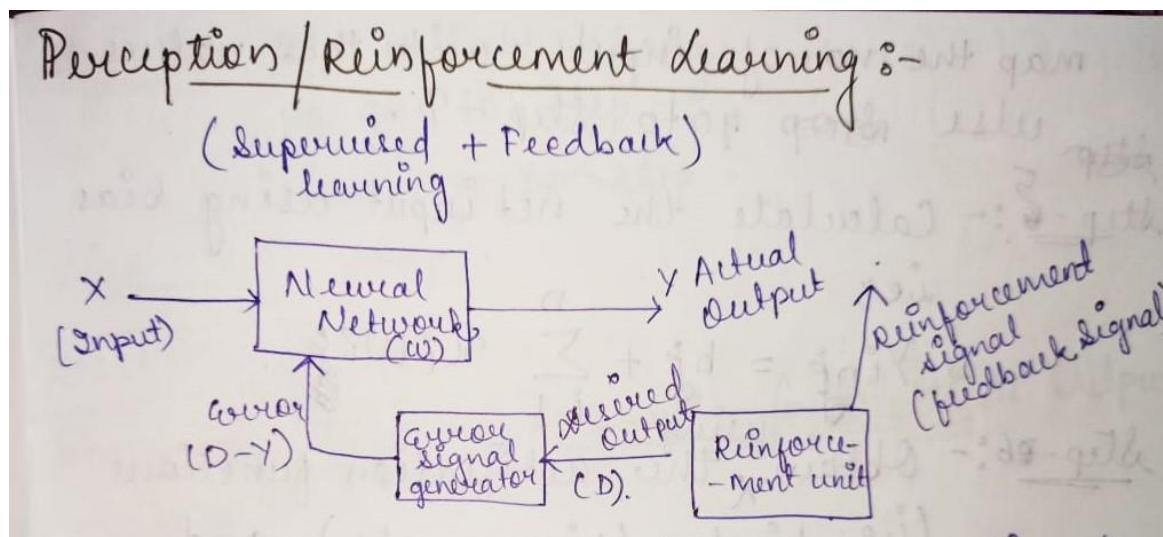 Perception / Reinforcement Learning :-
(Supervised + Feedback)
learning
X
(Input)
Neural
Network
(W)
Y Actual
Output
Reinforcement
signal
(feedback signal)
Error
(D-Y)
Error
signal
generator
Desired
Output
(D).
Reinforce-
-ment unit